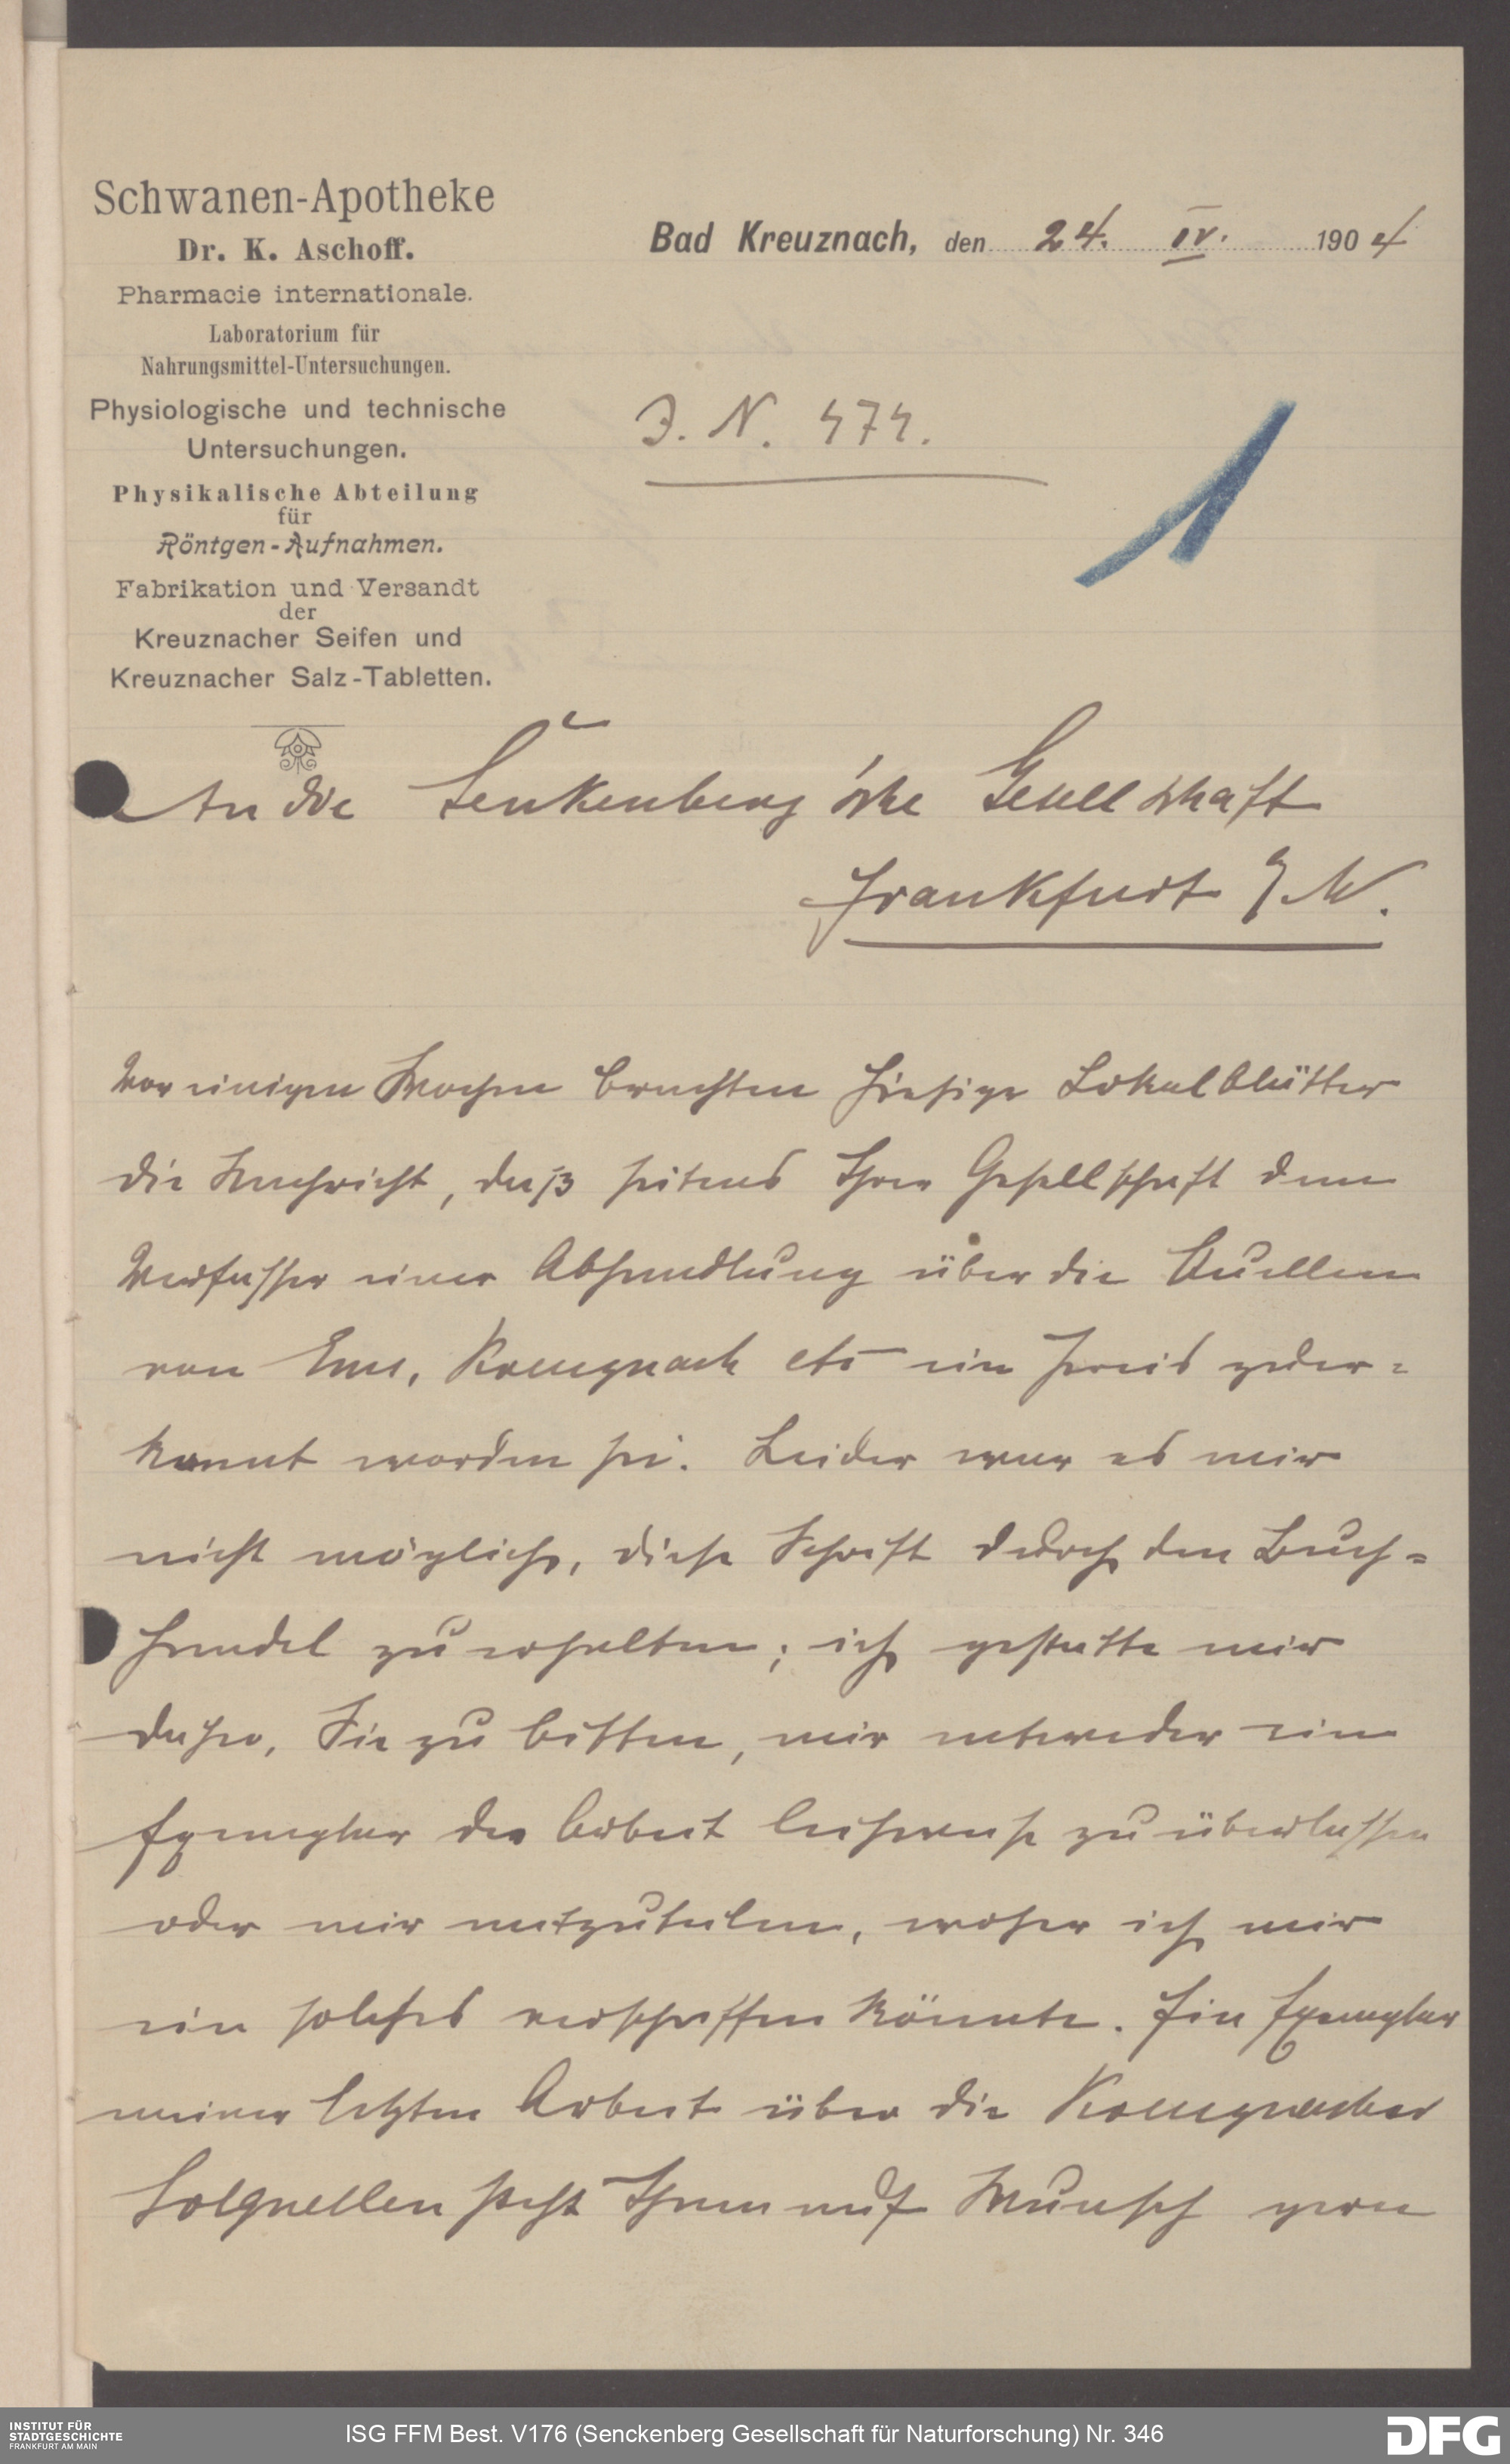 Schwanen-Apotheke
Dr. K. Aschoff.
Pharmacie internationale.
Laboratorium für
Nahrungsmittel-Untersuchungen.
Physiologische und technische
Untersuchungen.
Physikalische Abteilung
für
Röntgen-Aufnahmen.
Fabrikation und Versandt
der
Kreuznacher Seifen und
Kreuznacher Salz-Tabletten.
Bad Kreuznach, den 24. IV. 1904
J. N. 474.
An die Senkenberg'sche Gesellschaft
Frankfurt a/M.
Vor einigen Wochen brachten hiesige Lokalblätter
die Nachricht, daß seitens Ihrer Gesellschaft dem
Verfasser einer Abhandlung über die Quellen
von Ems, Kreuznach etc ein Preis zuer-
kannt worden sei. Leider war es mir
nicht möglich, diese Schrift durch den Buch-
handel zu erhalten; ich gestatte mir
daher, Sie zu bitten, mir entweder ein
Exemplar der Arbeit leihweise zu überlassen
oder mir mitzuteilen, woher ich mir
ein solches verschaffen könnte. Ein Exemplar
meiner letzten Arbeit über die Kreuznacher
Solquellen steht Ihnen auf Wunsch gern
INSTITUT FÜR
STADTGESCHICHTE
FRANKFURT AM MAIN
ISG FFM Best. V176 (Senckenberg Gesellschaft für Naturforschung) Nr. 346
DFG